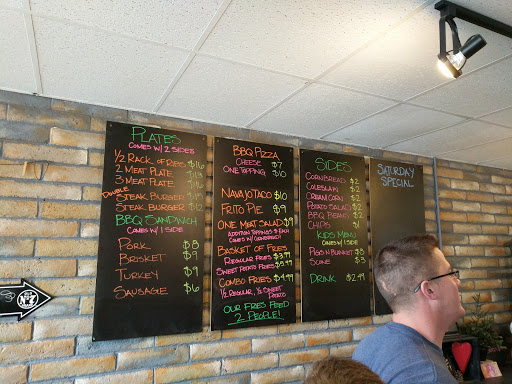 PLATES
COMES W/ 2 SIDES
1/2 RACK OF RIBS $16
2 MEAT PLATE $13
3 MEAT PLATE
STEAK BURGER
DOUBLE
STEAK BURGER
BBQ SANDWICH
COMES W/ 1 SIDE
PORK $8
BRISKET $9
TURKEY $9
SAUSAGE $6
BBQ PIZZA
CHEESE $7
ONE TOPPING $10
NAVAJO TACO $10
FRITO PIE $9
ONE MEAT SALAD $9
ADDITION TOPPINGS $ EACH
COMES W/ CORNBREAD
BASKET OF FRIES
REGULAR FRIES $3.99
SWEET POTATO FRIES $5.99
COMBO FRIES $4.99
1/2 REGULAR, 1/2 SWEET
POTATO
OUR FRIES FEED
2 PEOPLE!
SIDES
CORNBREAD $2
COLESLAW $2
CREAM CORN $2
POTATO SALAD $2
BBQ BEANS $2
CHIPS $1
KIDS MENU
COMES W/ 1 SIDE
PIGS N BLANKET $8
SCONE $3
DRINK $2.49
SATURDAY
SPECIAL